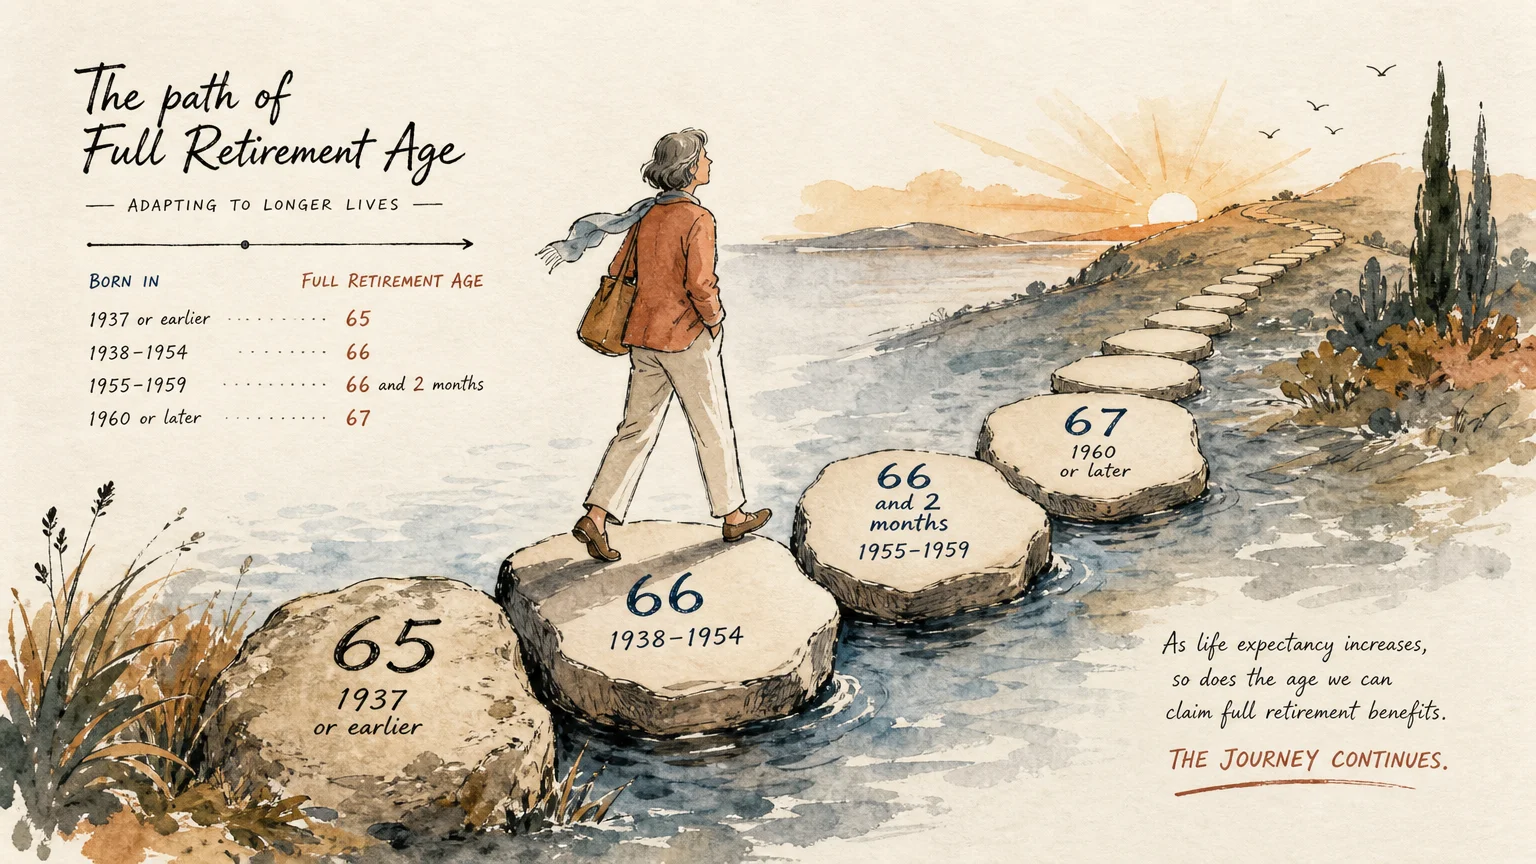 The path of
Full Retirement Age
ADAPTING TO LONGER LIVES
BORN IN FULL RETIREMENT AGE
1937 or earlier 65
1938–1954 66
1955–1959 66 and 2 months
1960 or later 67
67
1960
or later
66
and 2
months
1955–1959
66
1938–1954
65
1937
or earlier
As life expectancy increases,
so does the age we can
claim full retirement benefits.
THE JOURNEY CONTINUES.